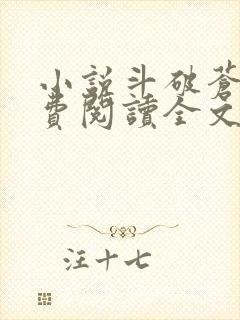 小説斗破蒼
費閱讀全文
汪十七